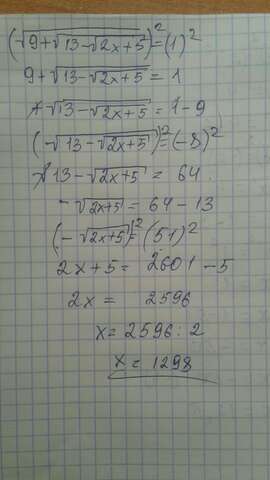 (√9+√13-√2x+5)² = (1)²
9+√13-√2x+5 = 1
+√13-√2x+5 = 1-9
(-√13-√2x+5)² = (-8)²
13-√2x+5 = 64
-√2x+5 = 64-13
(-√2x+5)² = (51)²
2x+5 = 2601-5
2x = 2596
x = 2596 : 2
x = 1298